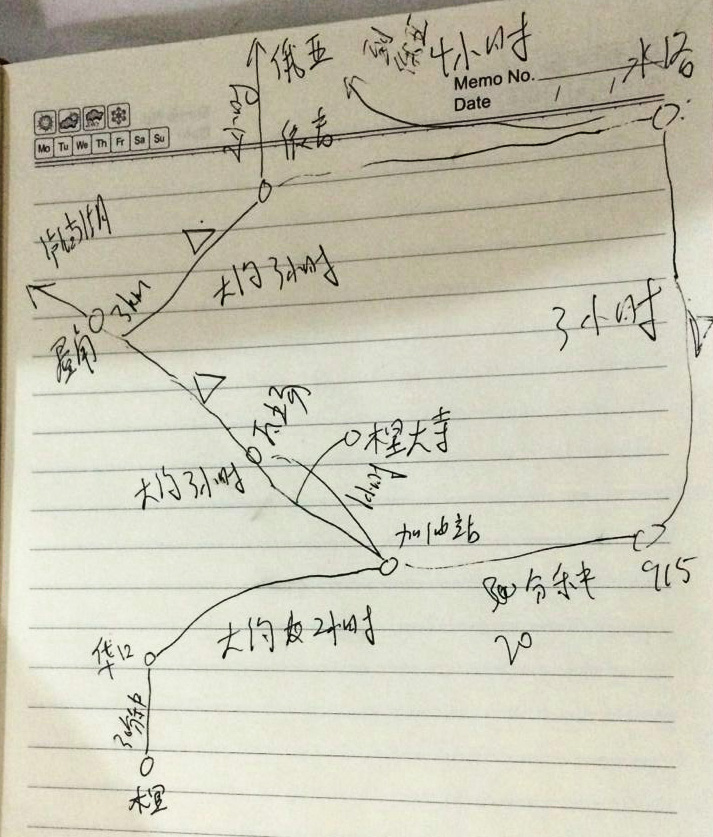 俄亚
4小时
水洛
Memo No.
Date
Mo Tu We Th Fr Sa Su
依吉
泸沽湖
3km
大约3小时
屋角
3小时
木里大寺
大约3小时
加油站
分钟
915
20
大约2小时
华口
30分钟
木里